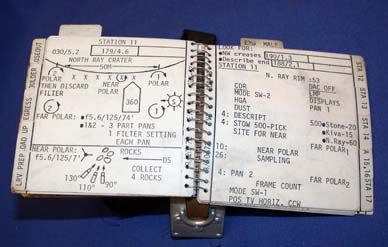 STATION 11
030/5.2
179/4.6
NORTH BAY CRATER
50M
POLAR
X X X X X
POLAR
THEN DISCARD
FILTER
NEAR
POLAR
360
FAR POLAR:
f5.6/125/74'
1&2 - 3 PART PANS
1 FILTER SETTING
EACH PAN
NEAR POLAR:
ROCKS
f5.6/125/7'
DS
COLLECT
4 ROCKS
130°
110°
90°
LRV PREP
LOAD UP
EGRESS
LOOK FOR:
NW creases
190/1.3
Describe end
188/2.1
STATION 11
N. RAY RIM :53
CDR
DAC OFF
MODE SW-2
LRP
HGA
DISPLAYS
DUST
PAN 1
4: DESCRIPT
4: STOW 500-PICK
500
Stone-20
SITE FOR NEAR
Kiva-15
N.Ray-60
10:
NEAR POLAR
FAR POLAR1
26:
SAMPLING
4: PAN 2
FAR POLAR2
FRAME COUNT
MODE SW-1
POS TV HORIZ, CCW
STA 12
STA 13
STA 17